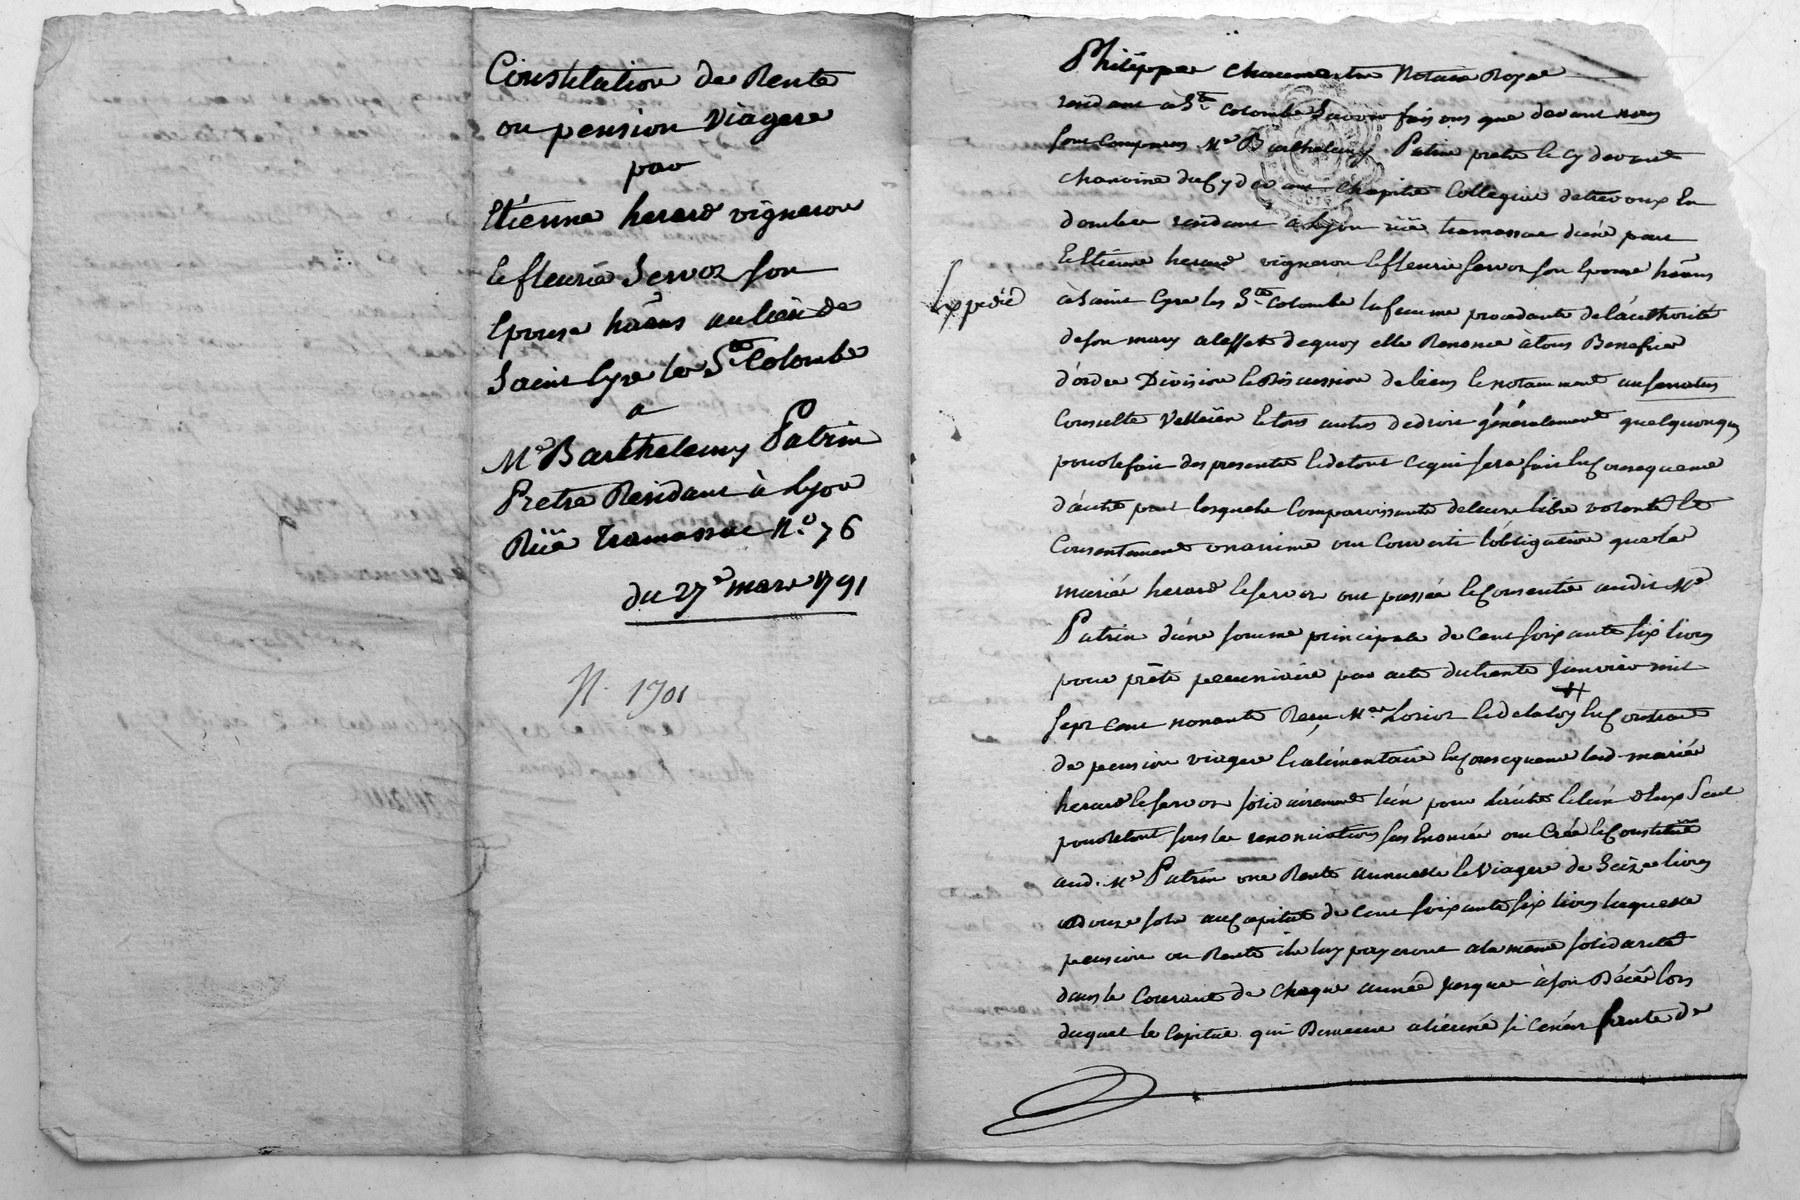 Constitution de Rente
ou pension Viagere
par
Etienne herard vigneron
& fleurie Servoz son
Epouse hãns au lieu de
Saint Cyre les Ste Colombe
a
Me Barthelemy Patrin
Pretre Residant à Lyon
Rüe Tramassac N.o 76
du 27e mars 1791
N. 1701
Expedié
Philippe Chaumartin Notaire Royal
résidant à Ste Colombe savoir faisons que devant nous
sont comparus Me Barthelemy Patrin pretre cy devant
chanoine du cy devant chapitre Collegial de trevoux En
dombe residant a Lyon rüe tramassac d'une part
Et Etienne herard vigneron & fleurie servoz son Epouse hãns
à Saint Cyre les Ste Colombe la femme procedante de l'authorité
de son mary a l'effet de quoy elle Renonce à tous Benefice
d'ordre Division & Discussion de biens & notamment au senatus
Consulte Velleïen & tous autres de droit généralement quelquonques
pour le fait des presente & de tout ce qui sera fait En Consequence
d'autre part lesquels Comparoissants de leure libre volonté &
Consentement unanime ont Converti l'obligation que les
mariés herard & servoz ont passée & Consentie audit Me
Patrin d'une somme principale de Cent soixante six livres
pour prêt pecuniaire par acte du trente Janvier mil
sept cent nonante Reçu Me Loriot & de la loy En Contrat
de pension viagere & alimentaire En Consequence lesd. mariés
herard & servoz solidairement l'un pour l'autre & l'un d'eux seul
pour le tout sous les renonciations sus Enoncée ont Créé & Constitué
aud. Me Patrin une Rente annuelle & Viagere de Seize livres
douze sols au Capital de Cent soixante six livres laquelle
pension ou Rente ils luy payeront a la même solidarité
dans le Courant de Chaque année Jusques à son Décès lors
duquel le Capital qui Demeure aliéné si Ce n'est faute de